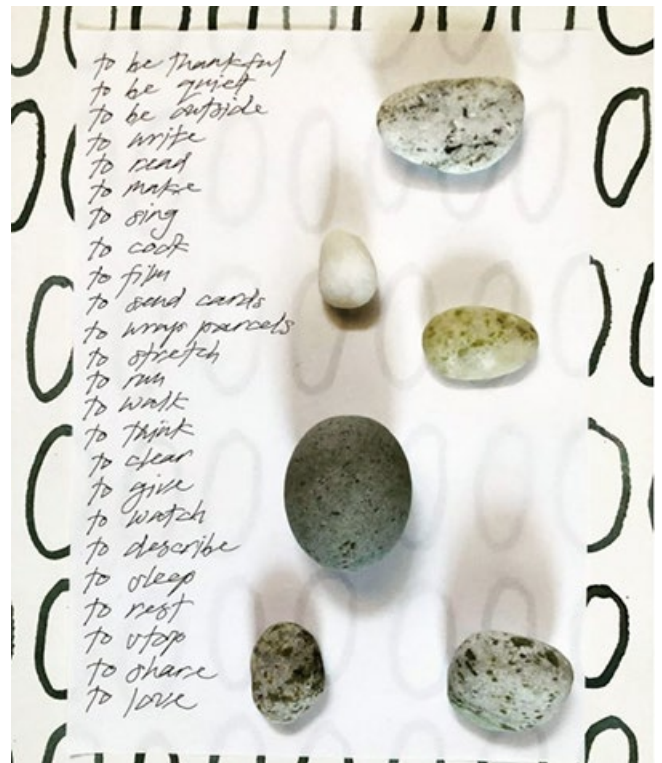 to be thankful
to be quiet
to be outside
to write
to read
to make
to sing
to cook
to film
to send cards
to wrap parcels
to stretch
to run
to walk
to think
to clean
to give
to watch
to describe
to sleep
to rest
to stop
to share
to love